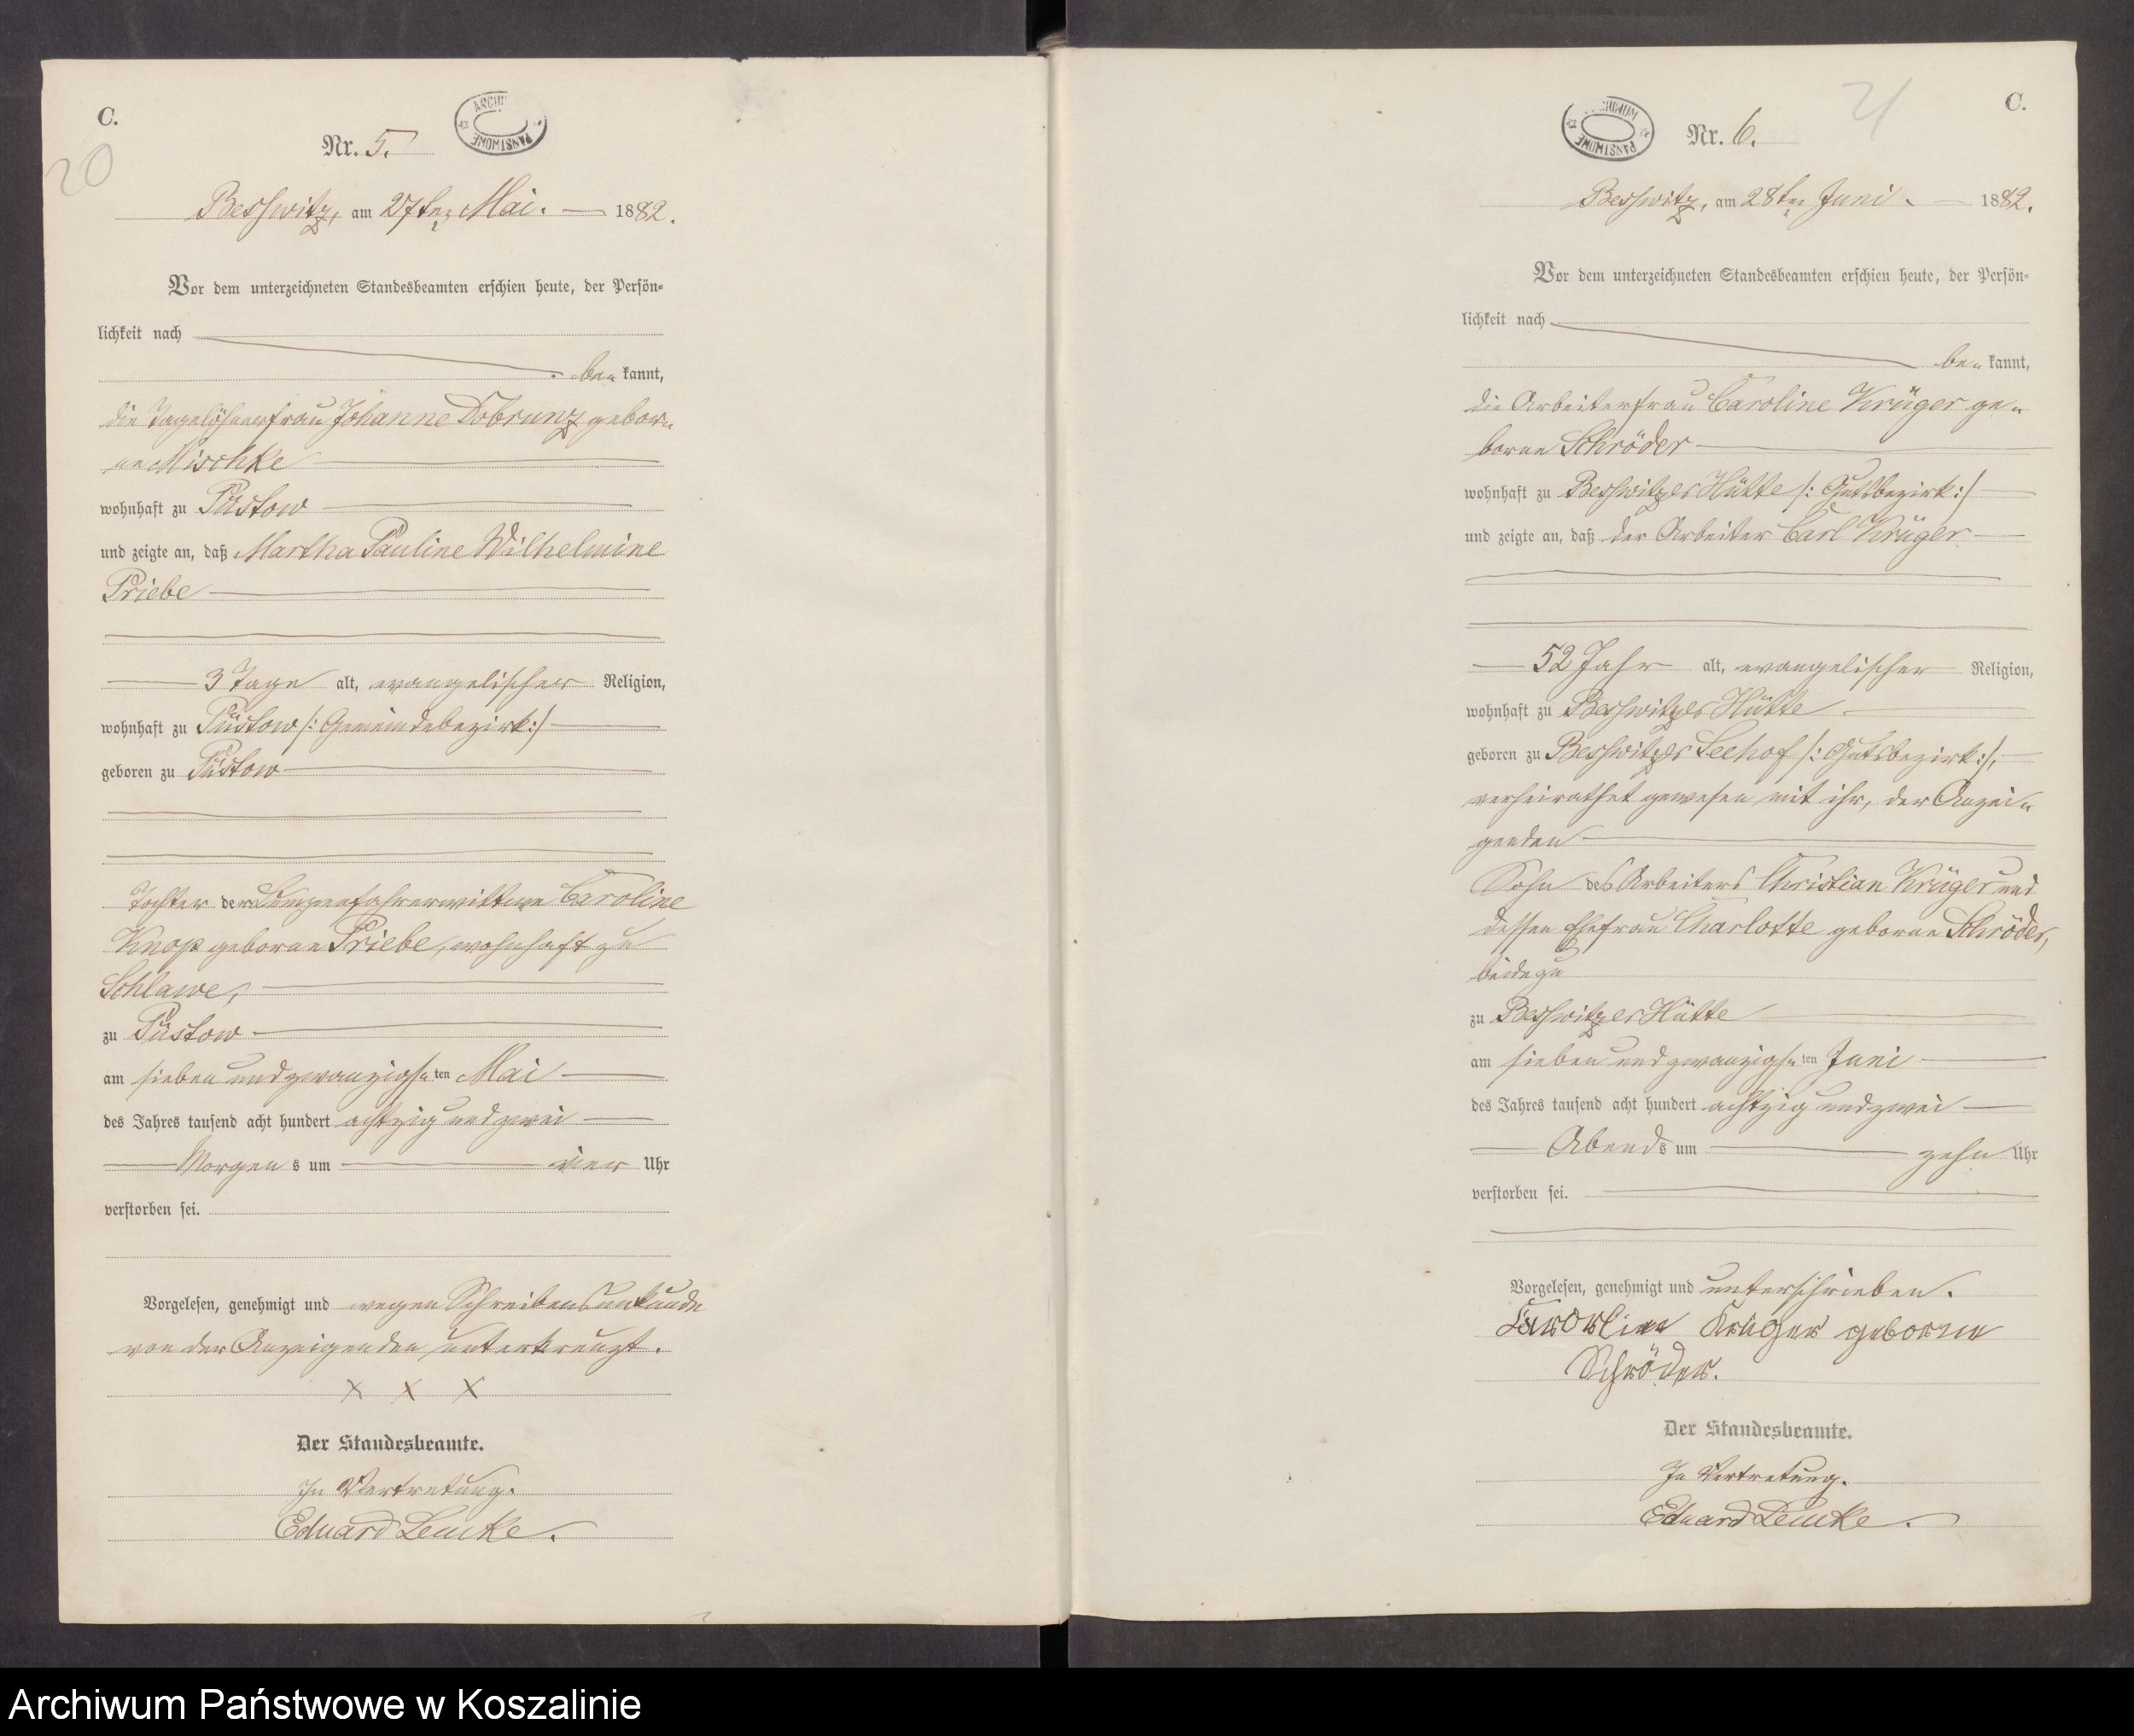 C.
20
Nr. 5.
ARCHI
PAŃSTWOWE
Besswitz, am 27ten Mai. 1882.
Vor dem unterzeichneten Standesbeamten erschien heute, der Persön-
lichkeit nach
be- kannt,
die Tagelöhnerfrau Johanne Dobrunz gebor-
ne Mischke
wohnhaft zu Püstow
und zeigte an, daß Martha Pauline Wilhelmine
Priebe
3 Tage alt, evangelischer Religion,
wohnhaft zu Püstow /: Gemeindebezirk :/
geboren zu Püstow
Tochter der Lumpenfahrerwittwe Caroline
Knop geborne Priebe, wohnhaft zu
Schlawe,
zu Püstow
am sieben und zwanzigs- ten Mai
des Jahres tausend acht hundert achtzig und zwei
Morgen s um vier Uhr
verstorben sei.
Vorgelesen, genehmigt und wegen Schreibensunkunde
von der Anzeigenden unterkreuzt.
X X X
Der Standesbeamte.
In Vertretung.
Eduard Lemke.
21
C.
CHIWUM
PAŃSTWOWE
Nr. 6.
Besswitz, am 28ten Juni. 1882.
Vor dem unterzeichneten Standesbeamten erschien heute, der Persön-
lichkeit nach
be- kannt,
die Arbeiterfrau Caroline Krüger ge-
borne Schröder
wohnhaft zu Besswitzer Hütte /: Gutsbezirk :/
und zeigte an, daß der Arbeiter Carl Krüger
52 Jahr alt, evangelischer Religion,
wohnhaft zu Besswitzer Hütte
geboren zu Besswitzer Seehof /: Gutsbezirk :/,
verheirathet gewesen mit ihr, der Anzei-
genden
Sohn des Arbeiters Christian Krüger und
dessen Ehefrau Charlotte geborne Schröder,
beide zu
zu Besswitzer Hütte
am sieben und zwanzigs- ten Juni
des Jahres tausend acht hundert achtzig und zwei
Abends um zehn Uhr
verstorben sei.
Vorgelesen, genehmigt und unterschrieben.
Karorline Krüger geborne
Schröder.
Der Standesbeamte.
In Vertretung.
Eduard Lemke.
Archiwum Państwowe w Koszalinie